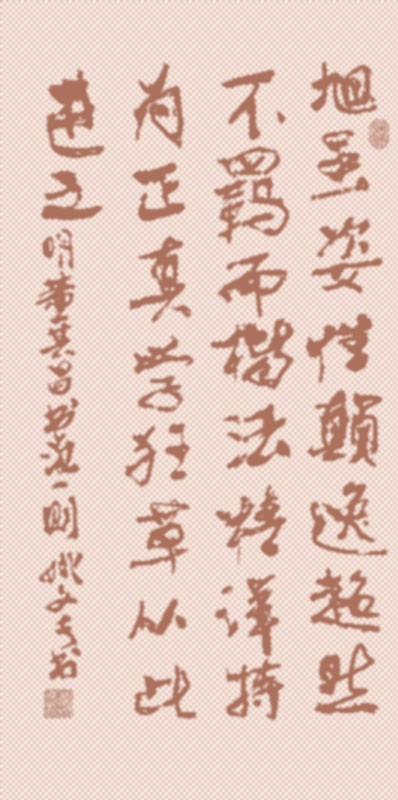 旭虽姿性颠逸超然
不羁而楷法精详特
为正真学狂草从此
进之明董其昌书一则文书